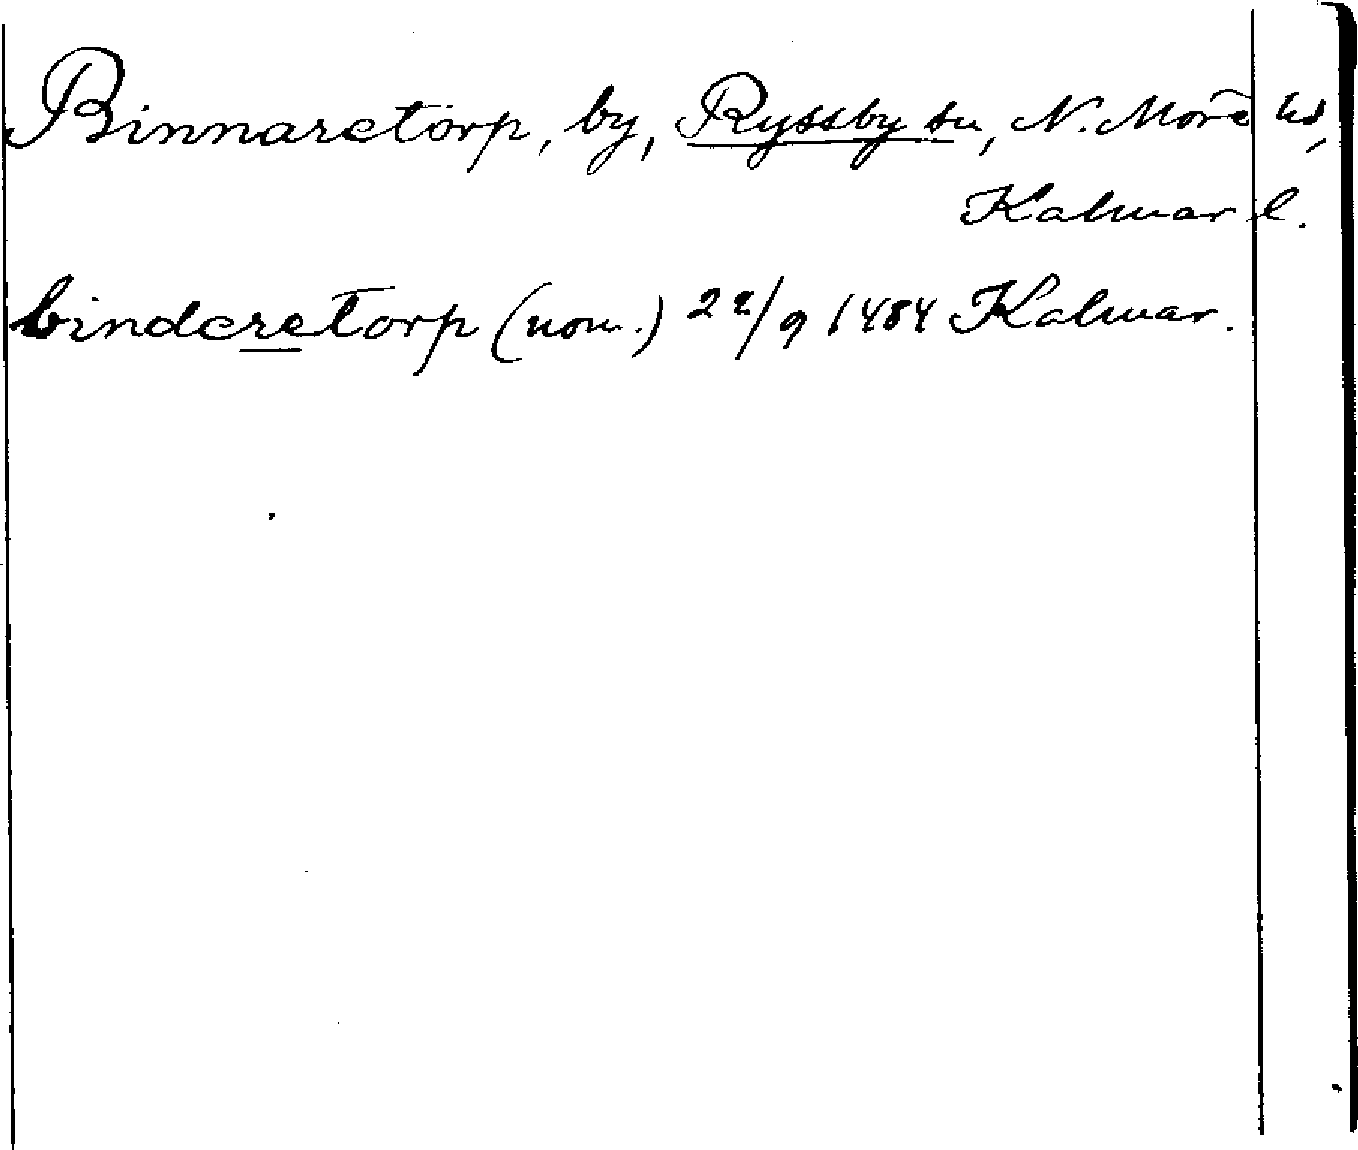 Binnaretorp, by, Ryssby sn, N. Möre hd,
Kalmar l.
binderetorp (nom.) 22/9 1484 Kalmar.